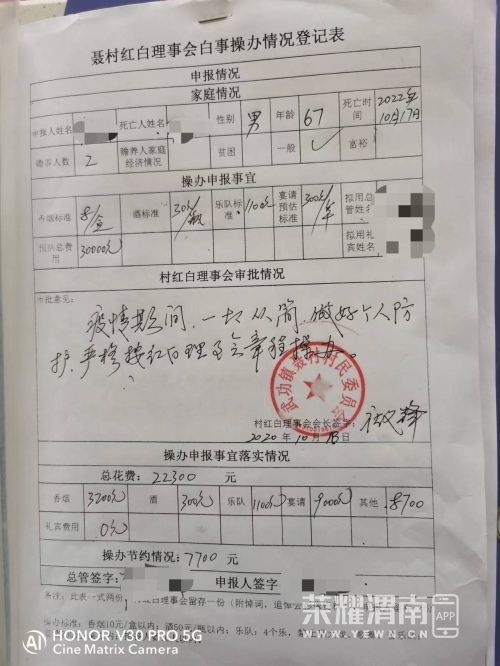 聂村红白理事会白事操办情况登记表
申报情况
家庭情况
申报人姓名 死亡人姓名 性别 男 年龄 67 死亡时间 2022年10月17日
赡养人数 2 赡养人家庭经济情况 贫困 一般 ✓ 富裕
操办申报事宜
香烟标准 8/盒 酒标准 30元/瓶 乐队标准 1100元 宴请预估标准 300元/车 拟用总管姓名
预估总费用 30000元 拟用礼宾姓名
村红白理事会审批情况
审批意见:
疫情期间,一切从简,做好个人防
护,严格按红白理事会章程操办。
武功镇聂村村民委员会
村红白理事会会长签字:
2020年10月18日
操办申报事宜落实情况
总花费:22300 元
香烟 3200元 酒 300元 乐队 1100元 宴请 9000元 其他 8700
礼宾费用 0元
操办节约情况:7700 元
总管签字: 申报人签字
备注:此表一式两份, 红白理事会留存一份(附悼词、追
操办标准:香烟10元/盒以内;酒50元/瓶以内;乐队:4个乐,
荣耀渭南 APP
WWW.YEWN.CN
AI HONOR V30 PRO 5G
Cine Matrix Camera